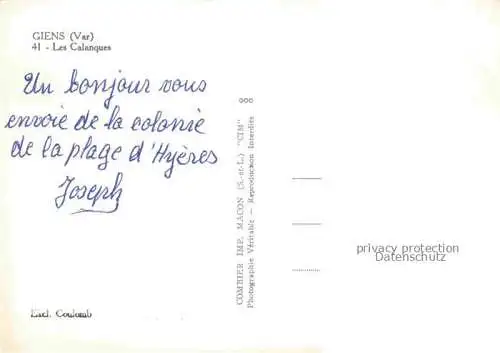 GIENS (Var)
41 - Les Calanques
Un bonjour vous
envoie de la colonie
de la plage d'Hyères
Joseph
Excl. Coulomb
COMBIER IMP. MACON (S.-et-L.) "CIM"
Photographie Véritable - Reproduction Interdite
privacy protection
Datenschutz